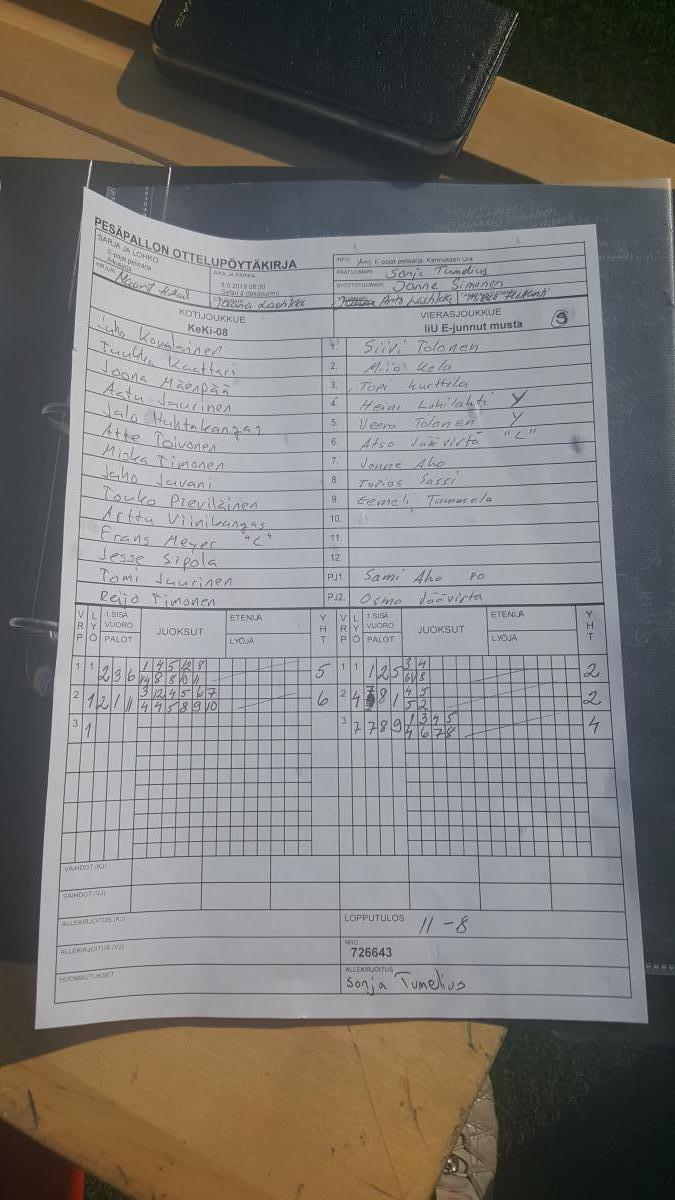 PESÄPALLON OTTELUPÖYTÄKIRJA
SARJA JA LOHKO
E-pojat pelisarja
Alkusarja
AIKA JA PAIKKA
8.6.2019 08:30
Safari 2 (tekonurmi)
INFO
E-pojat pelisarja: Kannuksen Ura
PÄÄTUOMARI
Sonja Tumelius
SYÖTTÖTUOMARI
Janne Simonen
KIRJURI
Jaana Lastikka
Arto Lastikka
KOTIJOUKKUE
KeKi-08
VIERASJOUKKUE
IiU E-junnut musta
3
Juho Kovalainen 1. Siivi Tolonen
Tuukka Kaattari 2. Miio Kela
Joona Mäenpää 3. Topi Kurttila
Aatu Jaurinen 4. Heini Lohilahti Y
Jalo Huhtakangas 5. Veera Tolonen Y
Atte Toivonen 6. Atso Jäävirta "C"
Miska Timonen 7. Jonne Aho
Juho Juvani 8. Topias Sassi
Touko Pieviläinen 9. Eemeli Tammela
Arttu Viinikangas 10.
Frans Meyer "C" 11.
Jesse Sipola 12.
Tomi Jaurinen PJ1. Sami Aho PO
Reijo Timonen PJ2. Osmo Jäävirta
VRP LYÖ 1.SISÄ VUORO PALOT JUOKSUT ETENIJÄ LYÖJÄ YHT VRP LYÖ 1.SISÄ VUORO PALOT JUOKSUT ETENIJÄ LYÖJÄ YHT
1 1 2 3 6 1 4 5 12 8 5 1 1 1 2 5 3 4 2
2 1 2 1 11 3 12 4 5 6 7 6 2 4 8 1 4 5 2
4 4 5 8 9 10 5 2
3 1 3 7 7 8 9 1 3 4 5 4
4 6 7 8
VAIHDOT (KJ)
VAIHDOT (VJ)
ALLEKIRJOITUS (KJ)
LOPPUTULOS 11-8
ALLEKIRJOITUS (VJ)
NRO
726643
HUOMAUTUKSET
ALLEKIRJOITUS
Sonja Tumelius